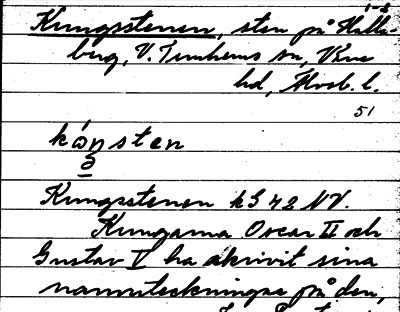 Kungsstenen, sten på Halle-
berg, V. Tunhems sn, Väne
hd, Älvsb. l.
51
kóŋsten
Kungsstenen kG 42 NV.
Kungarna Oscar II och
Gustav V ha skrivit sina
namnteckningar på den,